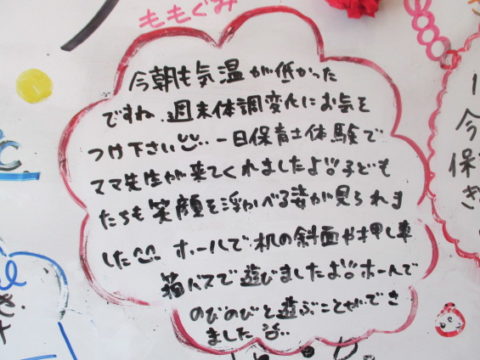 ももぐみ
今朝も気温が低かった
ですね。週末体調変化にお気を
つけ下さい‥一日保育士体験で
ママ先生が来てくれましたよ!!子ども
たちも笑顔を浮かべる姿が見られま
した ホールで机の斜面や押し車
箱バスで遊びましたよ!!ホールで
のびのびと遊ぶことができ
ました!!‥
今
保
き